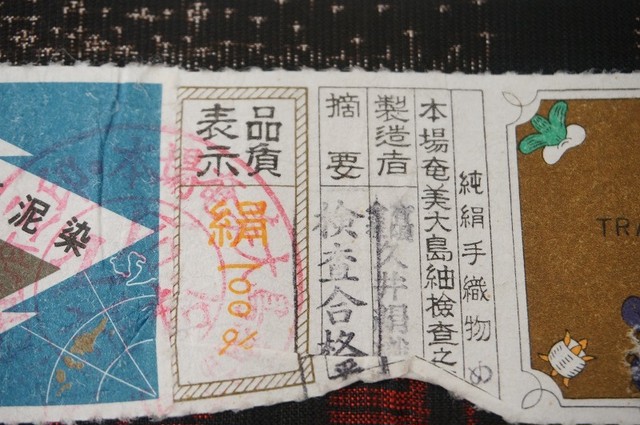 純絹手織物
本場奄美大島紬検査之
製造者
久井絹
摘要
検査合格
品質
表示
絹
100%
泥染
TRA